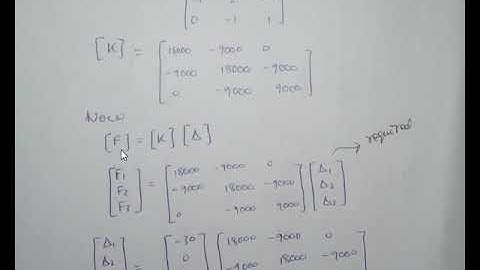 0 -1 1
[K] = 18000 -9000 0
-9000 18000 -9000
0 -9000 9000
Now
[F] = [K] [Δ]
required
F1 = 18000 -9000 0 Δ1
F2 -9000 18000 -9000 Δ2
F3 0 -9000 9000 Δ3
Δ1 = -30 18000 -9000 0
Δ2 0 -9000 18000 -9000